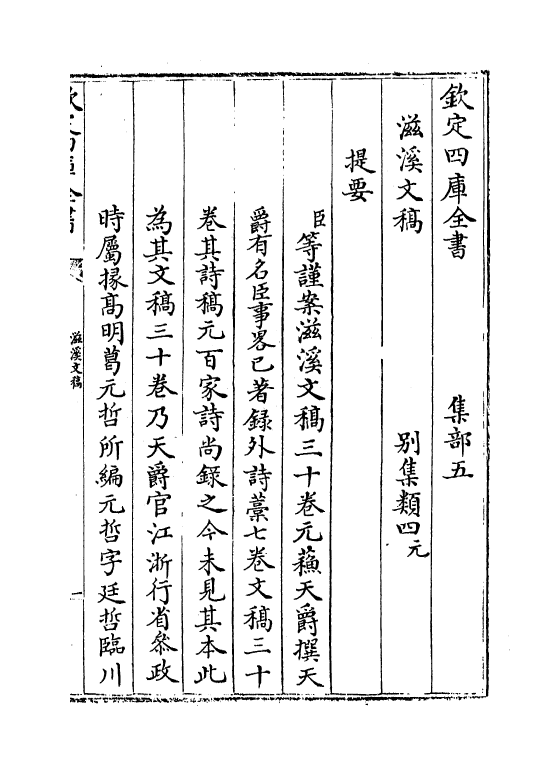 欽定四庫全書　集部五
滋溪文稿　别集類四元
提要
臣等謹案滋溪文稿三十卷元蘓天爵撰天
爵有名臣事畧已著録外詩藁七卷文稿三十
卷其詩稿元百家詩尚録之今未見其本此
為其文稿三十卷乃天爵官江浙行省叅政
時屬掾髙明葛元哲所編元哲字廷哲臨川
欽定四庫全書
滋溪文稿
一